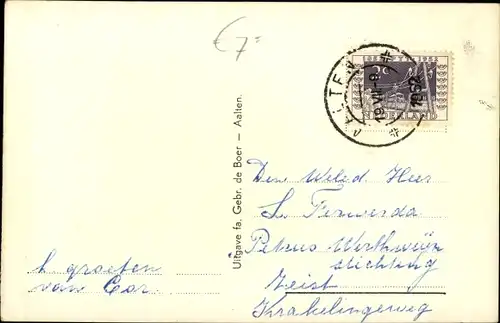 € 7=
AALTEN
19.VII-8
1952
2c
NEDERLAND
Uitgave fa. Gebr. de Boer – Aalten.
Den Weled. Heer
L. Ferwerda
Petrus
stichting
Zeist
Krakelingerweg
h. groeten
van Cor.